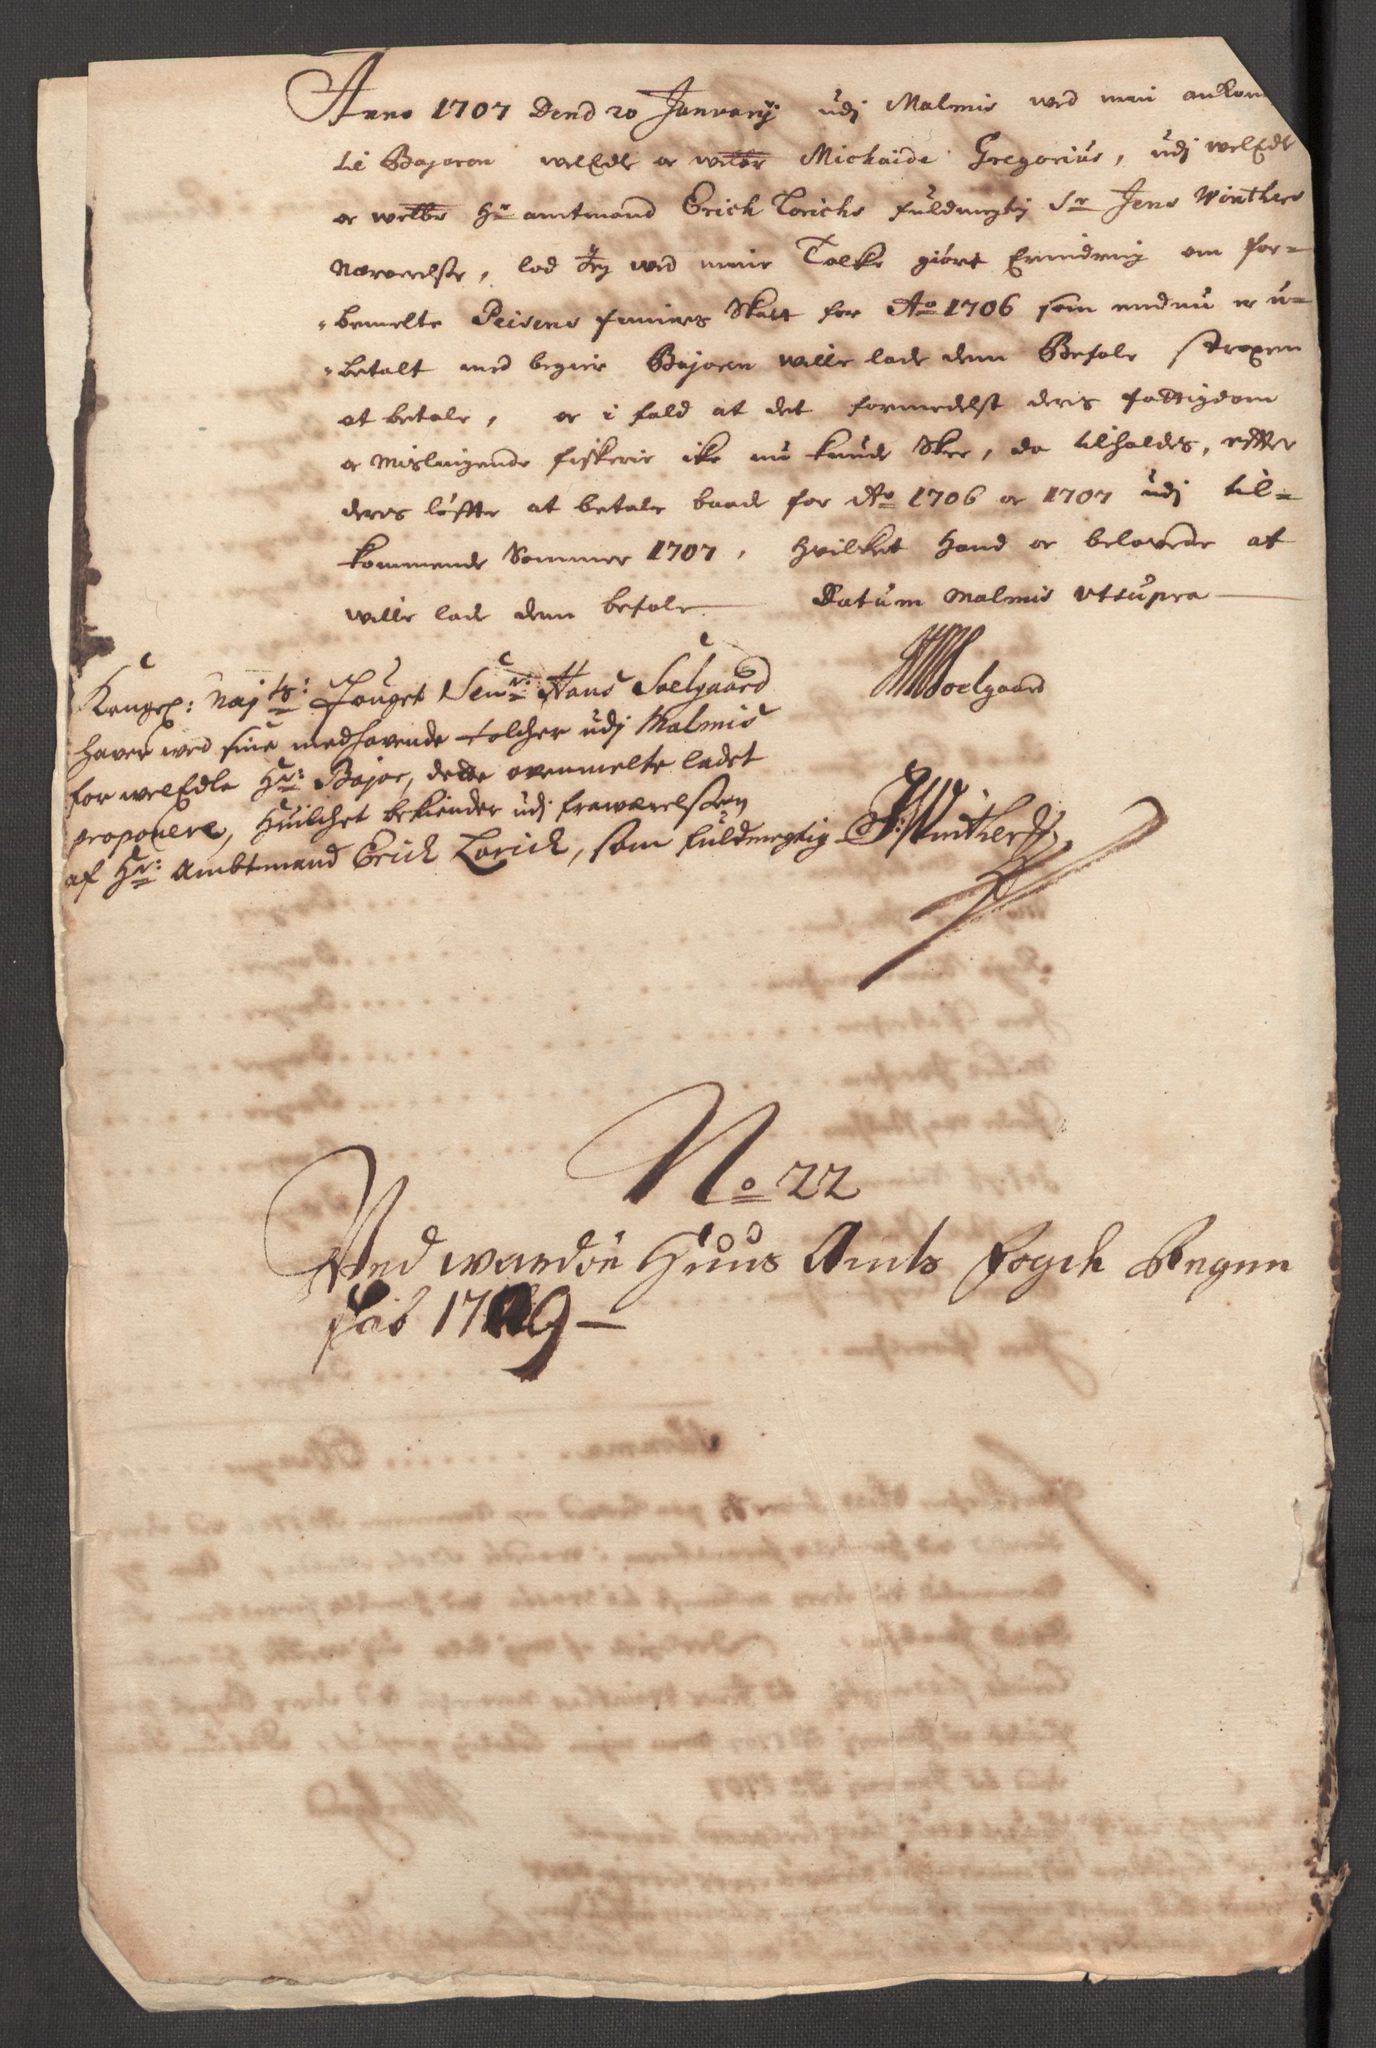 Anno 1707 Dend 20 Januarij udj Malmis wed min ankom
til Bajoren welEdle oc welbr Michaide Gregorius, udj welEdle
oc welbr Hr amtmand Erich Lorichs fuldmegtig Sr Jens Winthers
Nærwerelse, lod Jeg wed mine Tolke giöre Erindring om for-
-bemelte Peisens finners Skatt for Ao 1706 som endnu er u-
-betalt med begier Bajoren wille lade dem Befale strapen
at betale, oc i fald at det formedelst deris fattigdom
oc mislingende fiskerie ike nu kunde Skee, da tilholdes, efter
deres löffte at betale baade for Ao 1706 oc 1707 udj til-
kommende Sommer 1707, Hvilket Hand oc belovede at
wille lade dem befale Datum Malmis utsupra
HSoelgaard
Kongl: Maj ts: Fouget Senr: Hans Soelgaard
hawer wed sine medhavende tolcher udj Malmis
for welEdle Hr: Bajor, dette ovenmelte ladet
proponere, Huilchet bekiender udj frawærelsen
af Hr: Ambtmand Erich Lorich, som fuldmegtig J: Winther
No 22
Ved wardöe Huus Amts fogde Regnn
skab 1709